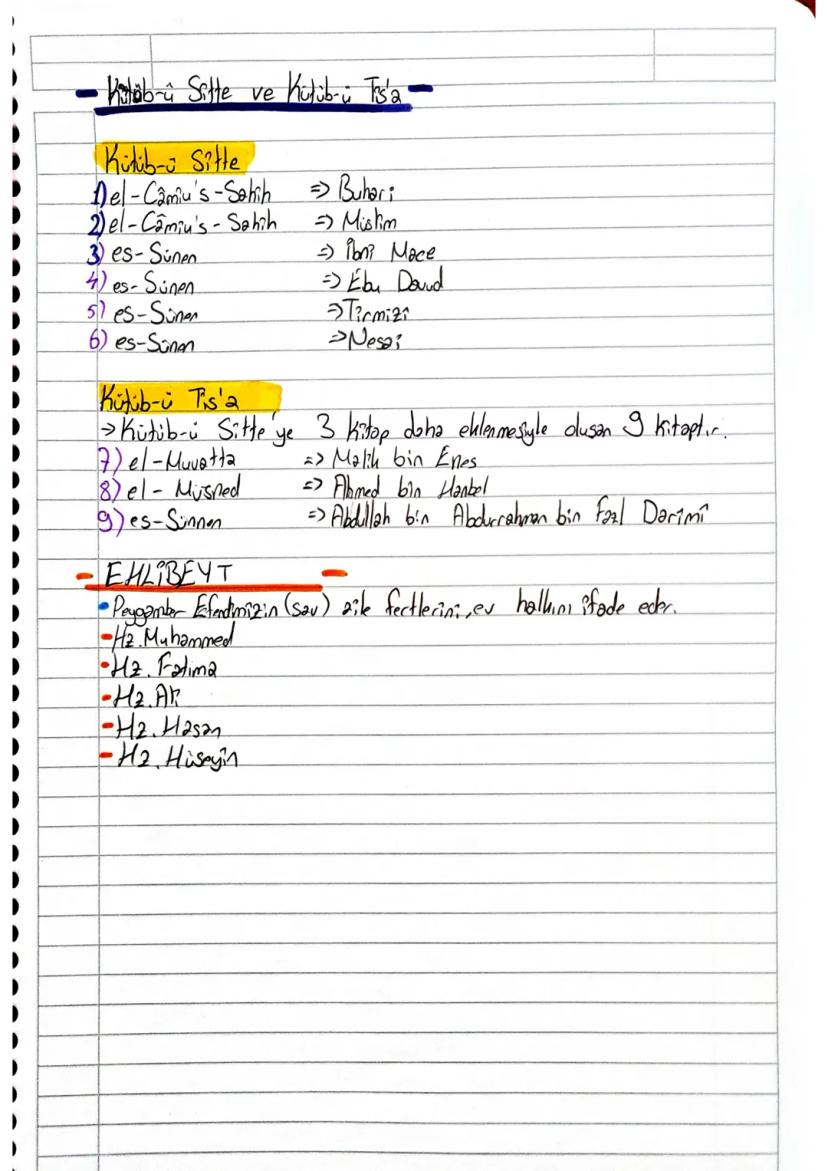 - Kütüb-ü Sitte ve Kütüb-ü Tis'a -
Kütüb-ü Sitte
1) el-Câmiu's-Sahih => Buhari
2) el-Câmiu's-Sahih => Müslim
3) es-Sünen => İbni Mace
4) es-Sünen => Ebu Davud
5) es-Sünen => Tirmizi
6) es-Sünen => Nesai
Kütüb-ü Tis'a
→ Kütüb-ü Sitte'ye 3 kitap daha eklenmesiyle oluşan 9 kitaptır.
7) el-Muvatta => Malik bin Enes
8) el-Müsned => Ahmed bin Hanbel
9) es-Sünnen => Abdullah bin Abdurrahman bin Fazl Darimî
- EHLİBEYT -
• Peygamber Efendimizin (sav) aile fertlerini, ev halkını ifade eder.
- Hz. Muhammed
- Hz. Fatıma
- Hz. Ali
- Hz. Hasan
- Hz. Hüseyin